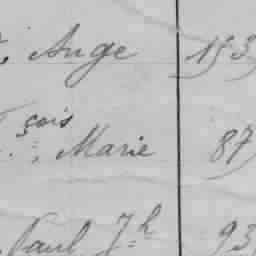 , Ange 153
Fçois, Marie 87
Paul Jh 93